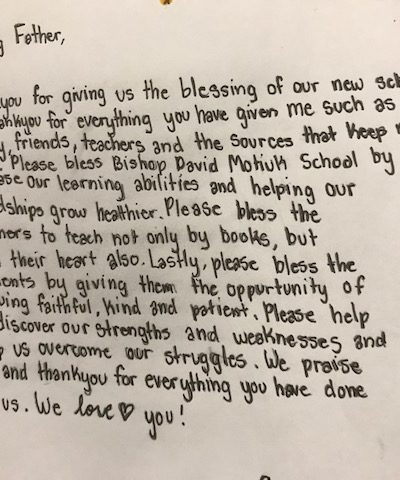 Father,
you for giving us the blessing of our new
thankyou for everything you have given me such as
friends, teachers and the sources that keep
Please bless Bishop David Motiuk School by
our learning abilities and helping our
grow healthier. Please bless the
to teach not only by books, but
their heart also. Lastly, please bless the
by giving them the oppurtunity of
faithful, kind and patient. Please help
discover our strengths and weaknesses and
us overcome our struggles. We praise
and thankyou for everything you have done
us. We love ♡ you!